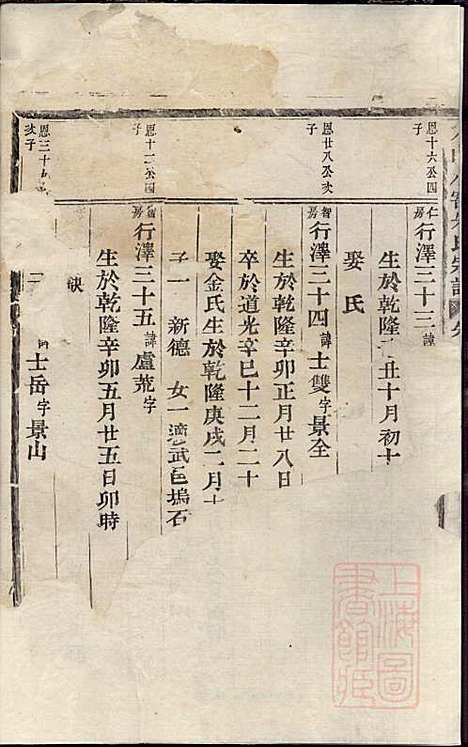 恩十六公四
子
仁
房行澤三十三諱
生於乾隆 丑十月初十
娶氏
恩廿八公次
子
智
房行澤三十四諱士雙字景全
生於乾隆辛卯正月廿八日
卒於道光辛巳十二月二十
娶金氏生於乾隆庚戌二月十
子一 新德 女一適武邑塢石
恩十二公四
子
智
房行澤三十五諱盧荒字
生於乾隆辛卯五月廿五日卯時
缺
恩三十五
次子
士岳字景山
氏宗譜
上海圖
書館藏